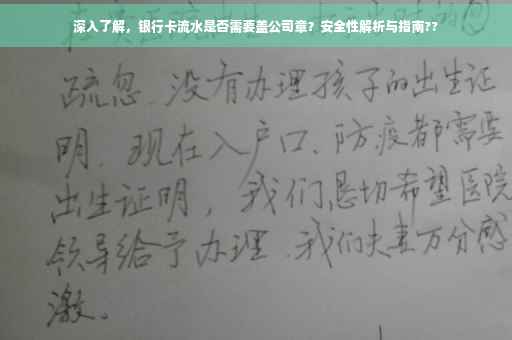 深入了解，银行卡流水是否需要盖公司章？安全性解析与指南??
疏忽、没有办理孩子的出生证
明．现在入户口、防疫都需要
出生证明，我们恳切希望医院
领导给予办理．我们夫妻万分感
激。